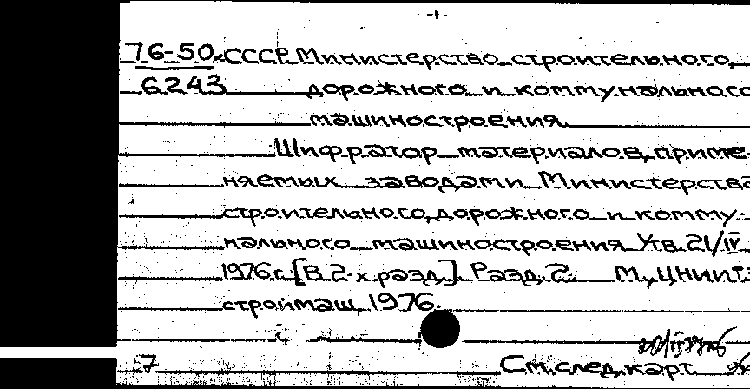 76-50 СССР. Министерство строительного,
6243 дорожного и коммунального
машиностроения.
Шифратор материалов, приме-
няемых заводами Министерства
строительного, дорожного и комму-
нального машиностроения. Утв. 21/IV
1976г. [В 2-х разд.] Разд. 2. М., ЦНИИТЭ
строймаш, 1976.
7 См. след. карт.